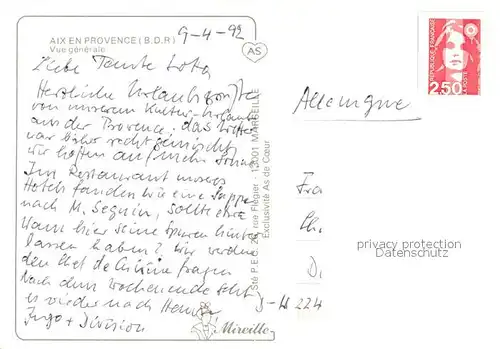 AIX EN PROVENCE (B.D.R)
Vue générale
9-4-92
AS
Liebe Tante Lota
Herzliche Urlaubsgrüße
von unserem Kultur-Urlaub
aus der Provence. das Wetter
war bisher recht gemischt
wir hoffen auf mehr Sonne
Im Restaurant unseres
Hotels fanden wir eine Suppe
nach M. Seguin, sollte etwa
Hann hier seine Spuren hinter-
lassen haben? Wir werden
den Chef de Cuisine fragen
Nach dem Wochenende geht
es wieder nach
Ingo + Division
Mireille
Sté P.E.C. rue Flégier - 13001 MARSEILLE
Exclusivité As de Cœur
REPUBLIQUE FRANÇAISE
2,50
LA POSTE
Allemagne
Fra
Ch
D
D-W 224
privacy protection
Datenschutz